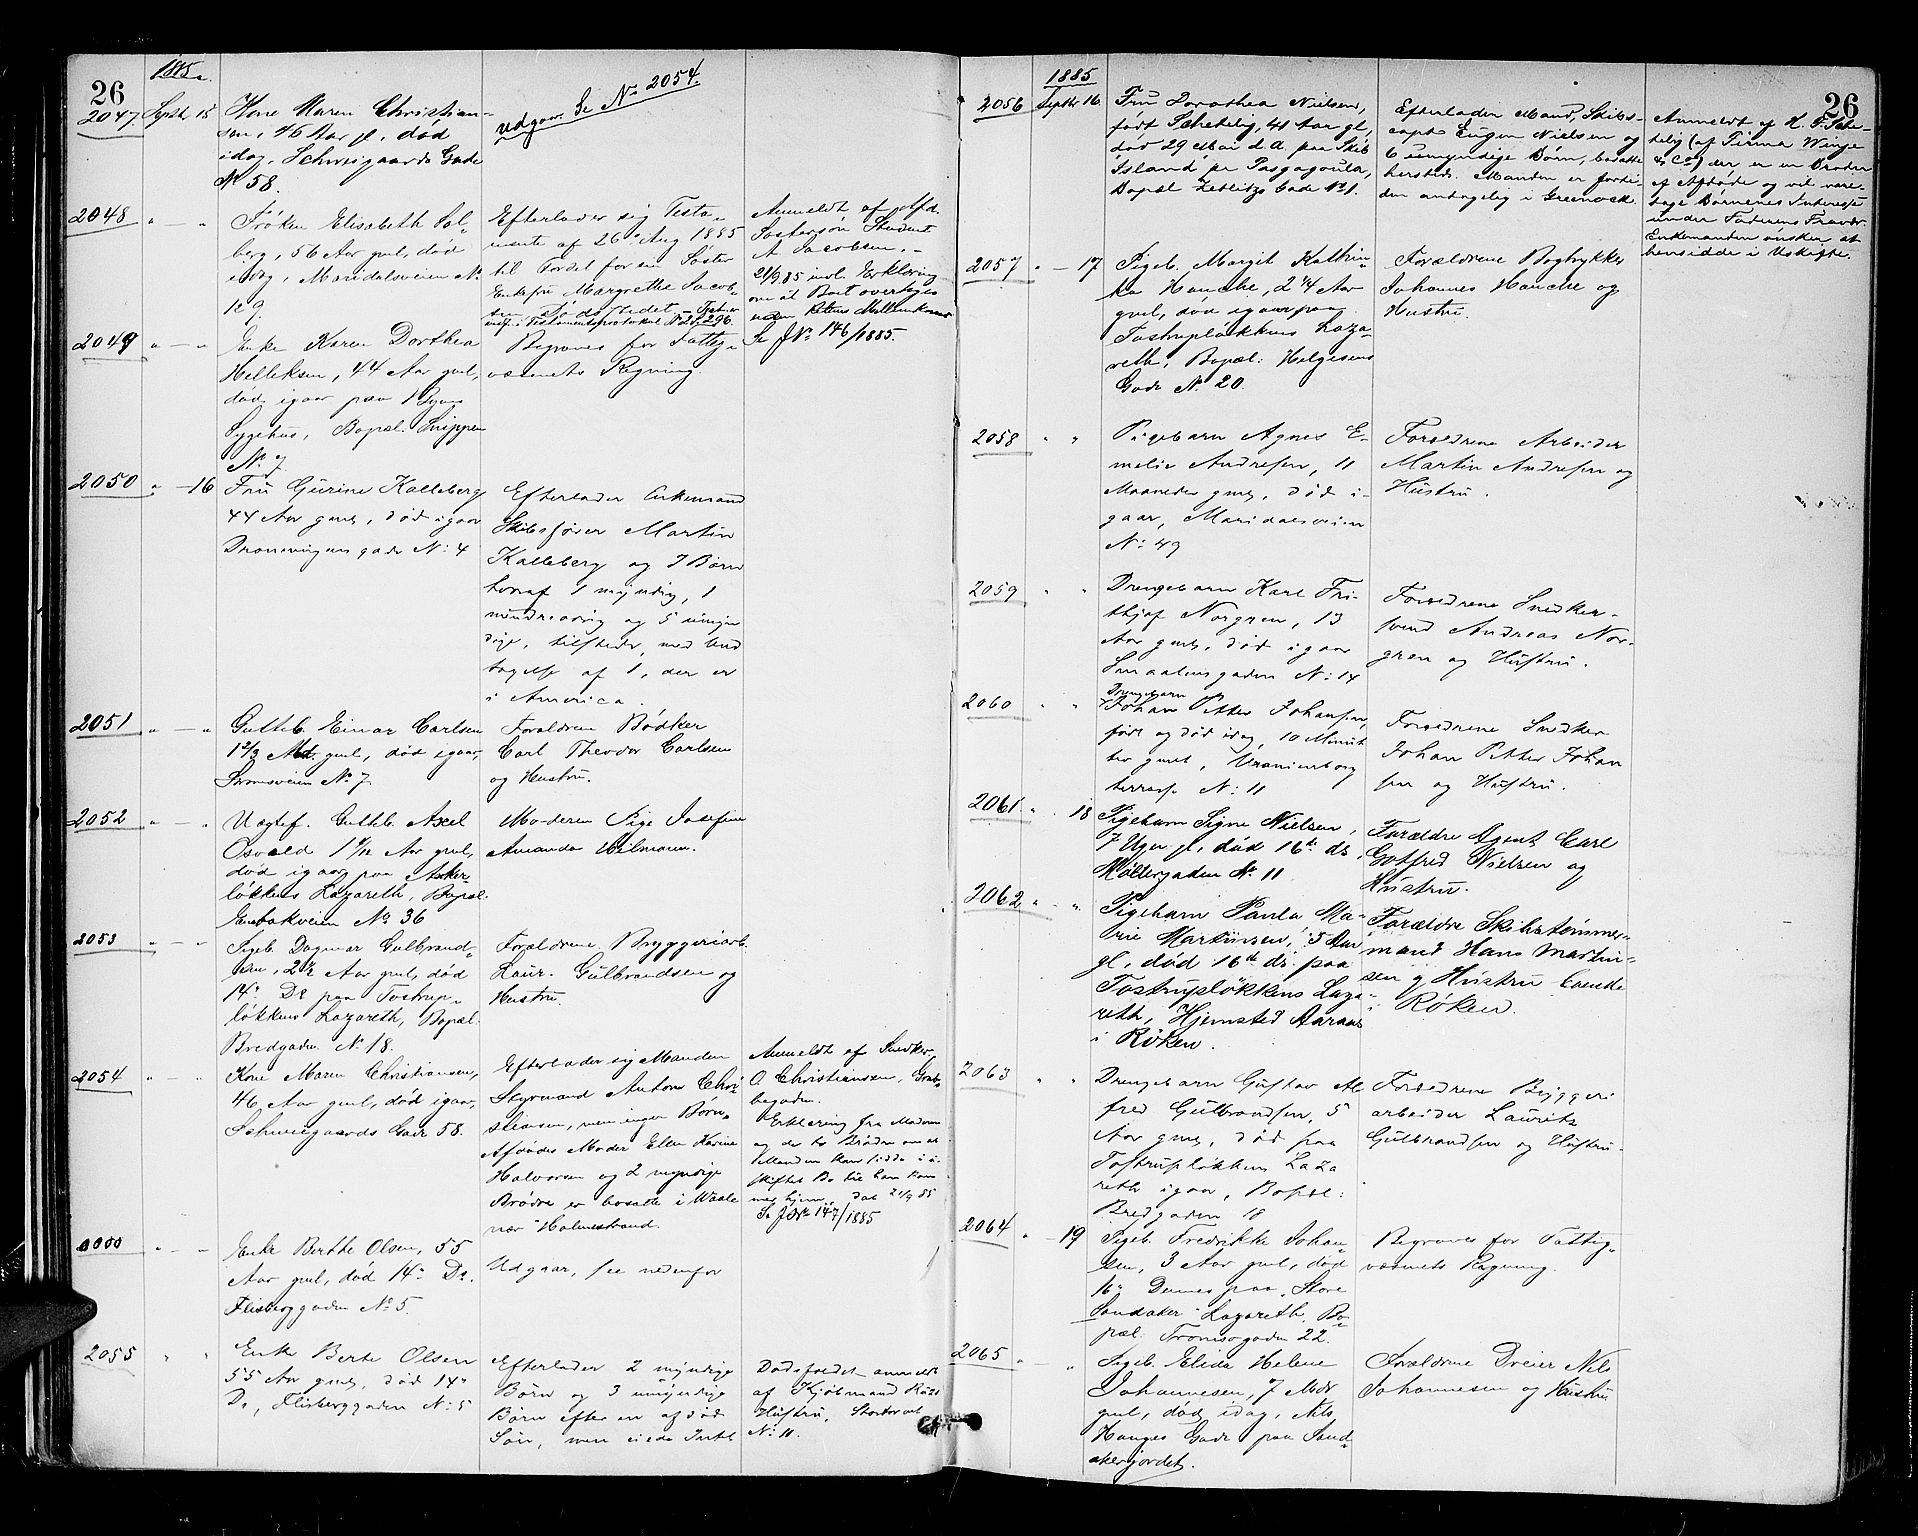 26
1885.
2047
Septbr 15
Kone Maren Christian-
sen, 46 Aar gl, død
idag, Schweigaards Gade
No 58.
udgaar. Se No 2054.
2048
" — "
Frøken Elisabeth Sol-
berg, 56 Aar gml, død
idag, Maridalsveien No
19.
Efterlader sig Testa-
mente af 26 Aug 1885
til Fordel for en Søster
Enkefru Margrethe Jacob-
sen, Dødsstedet
Anmeldt af afd.
Søstersøn Student
A Jacobsen. -
21/9 85 indl. Erklæring
om at Boet overtages
uden Rettens Mellemkomst
Se JNo 146/1885.
2049
" — "
Enke Karen Dorthea
Helleksen, 44 Aar gml,
død igaar paa Byens
Sygehus, Bopæl: Snippen
No 7
Begraves for Fattig-
væsenets Regning.
2050
" — 16
Fru Gurine Kalleberg
44 Aar gml, død igaar
Dronningens gade No: 4
Efterlader Enkemand
Skibsfører Martin
Kalleberg og 7 Børn
hvoraf 1 myndig, 1
mindreaarig og 5 umyn
dige, tilstede, med und
tagelse af 1, der er
i America.
2051
" — "
Gutteb. Einar Carlsen
1 2/3 Md. gml, død igaar,
Strømsveien No 7
Forældrene Bødker
Carl Theodor Carlsen
og Hustru.
2052
" — "
Uægtef. Guttb. Axel
Osvald 1 4/12 Aar gml,
død igaar paa Anker-
løkkens Lazareth, Bopæl.
Enebakveien No 36
Moderen Pige Josefine
Amanda Wilmann.
2053
" — "
Pigeb. Dagmar Gulbrand-
sen, 2 1/2 Aar gml, død
14de Ds paa Tostrup-
løkkens Lazareth, Bopæl.
Bredgaden No 18.
Forældrene Bryggeriarb.
Laur. Gulbrandsen og
Hustru.
2054
" — "
Kone Maren Christiansen,
46 Aar gml, død igaar,
Schweigaards Gade 58.
Efterlader sig Manden
Styrmand Anton Chri-
stiansen, men ingen Børn.
Afdødes Moder Ellen Karine
Halvorsen og 2 myndige
Brødre er bosatte i Waale
nær Holmestrand.
Anmeldt af Snedker
O Christiansen, Grub-
begaden.
Erklæring fra Moderen
og de to Brødre om at
Manden kan sidde i u-
skiftet Bo til han kom
mer hjem, dat 21/9 85
Se JNo 147/1885
" — "
Enke Berthe Olsen, 55
Aar gml, død 14de Ds.
Flisberggaden No 5.
Udgaar, see nedenfor
2055
" "
Enke Berte Olsen
55 Aar gml, død 14de
Ds, Flisberggaden No: 5
Efterlader 2 myndige
Børn og 3 umyndige
Børn efter en afdød
Søn, men eiede Intet
Dødsfaldet anmeldt
af Kjøbmand
Hustru, Stortorvet
No: 11.
26
1885
2056
Septbr 16.
Fru Dorothea Nielsen,
født Schetelig, 41 Aar gl,
død 29 Mai d.A. paa Skib
"Island" pr Pasgagoula,
Bopæl Zetlitz Gade No 1.
Efterlader Mand, Skibs-
capt. Eugen Nielsen og
6 umyndige Børn, bosatte
hersteds. Manden er forti-
den antagelig i Greenock
Anmeldt af H. F. Sche-
telig (af Firma Winge
& Co) der er en Broder
af Afdøde og vil vare-
tage Børnenes Interesse
under Faderens Fravær.
Enkemanden ønsker at
hensidde i Uskifte.
2057
" — 17
Pigeb. Margit Kathrin-
ka Hanche, 2 3/4 Aar
gml, død igaar paa
Tostrupløkkens Laza-
reth, Bopæl: Helgesens
Gade No. 20.
Forældrene Bogtrykker
Johannes Hanche og
Hustru.
2058
" "
Pigebarn Agnes E-
melie Andresen, 11
Maaneder gml, død i-
gaar, Maridalsveien
No: 49
Forældrene Arbeider
Martin Andresen og
Hustru.
2059
" "
Drengebarn Karl Fri-
thjof Norgren, 13
Aar gml, død igaar
Smaalensgaden No: 14
Forældrene Snedker-
svend Andreas Nor-
gren og Hustru.
2060
" "
Drengebarn
Johan Petter Johansen,
født og død idag, 10 Minut
ter gml, Uranienborg
terrasse No: 11
Forældrene Snedker
Johan Petter Johan
sen og Hustru.
2061
" 18
Pigebarn Signe Nielsen,
7 Uger gl, død 16de ds,
Møllergaden No. 11
Forældre Agent Carl
Gotfred Nielsen og
Hustru.
2062
" — "
Pigebarn Paula Ma-
rie Martinsen, 5 Aar
gl, død 16de ds. paa
Tostrupløkkens Laza-
reth, Hjemsted Aaraas
i Røken.
Forældre Skibstømmer-
mand Hans Martin-
sen og Hustru boende
i Røken.
2063
" "
Drengebarn Gustav Al
fred Gulbrandsen, 5
Aar gml, død paa
Tostrupløkkens Laza
reth igaar, Bopæl:
Bredgaden 18
Forældrene Bryggeri
arbeider Lauritz
Gulbrandsen og Hustru
2064
" — 19
Pigeb. Fredrikke Johan-
sen, 3 Aar gml, død
16de Dennes paa "Store
Sandaker" Lazareth, Bo-
pæl: Tromsøgaden 22.
Begraves for Fattig-
væsenets Regning.
2065
" — "
Pigeb. Elida Helene
Johannesen, 7 Mdr
gml, død idag, Nils
Hauges Gade paa Sand-
akerjordet.
Forældrene Dreier Nils
Johannesen og Hustru